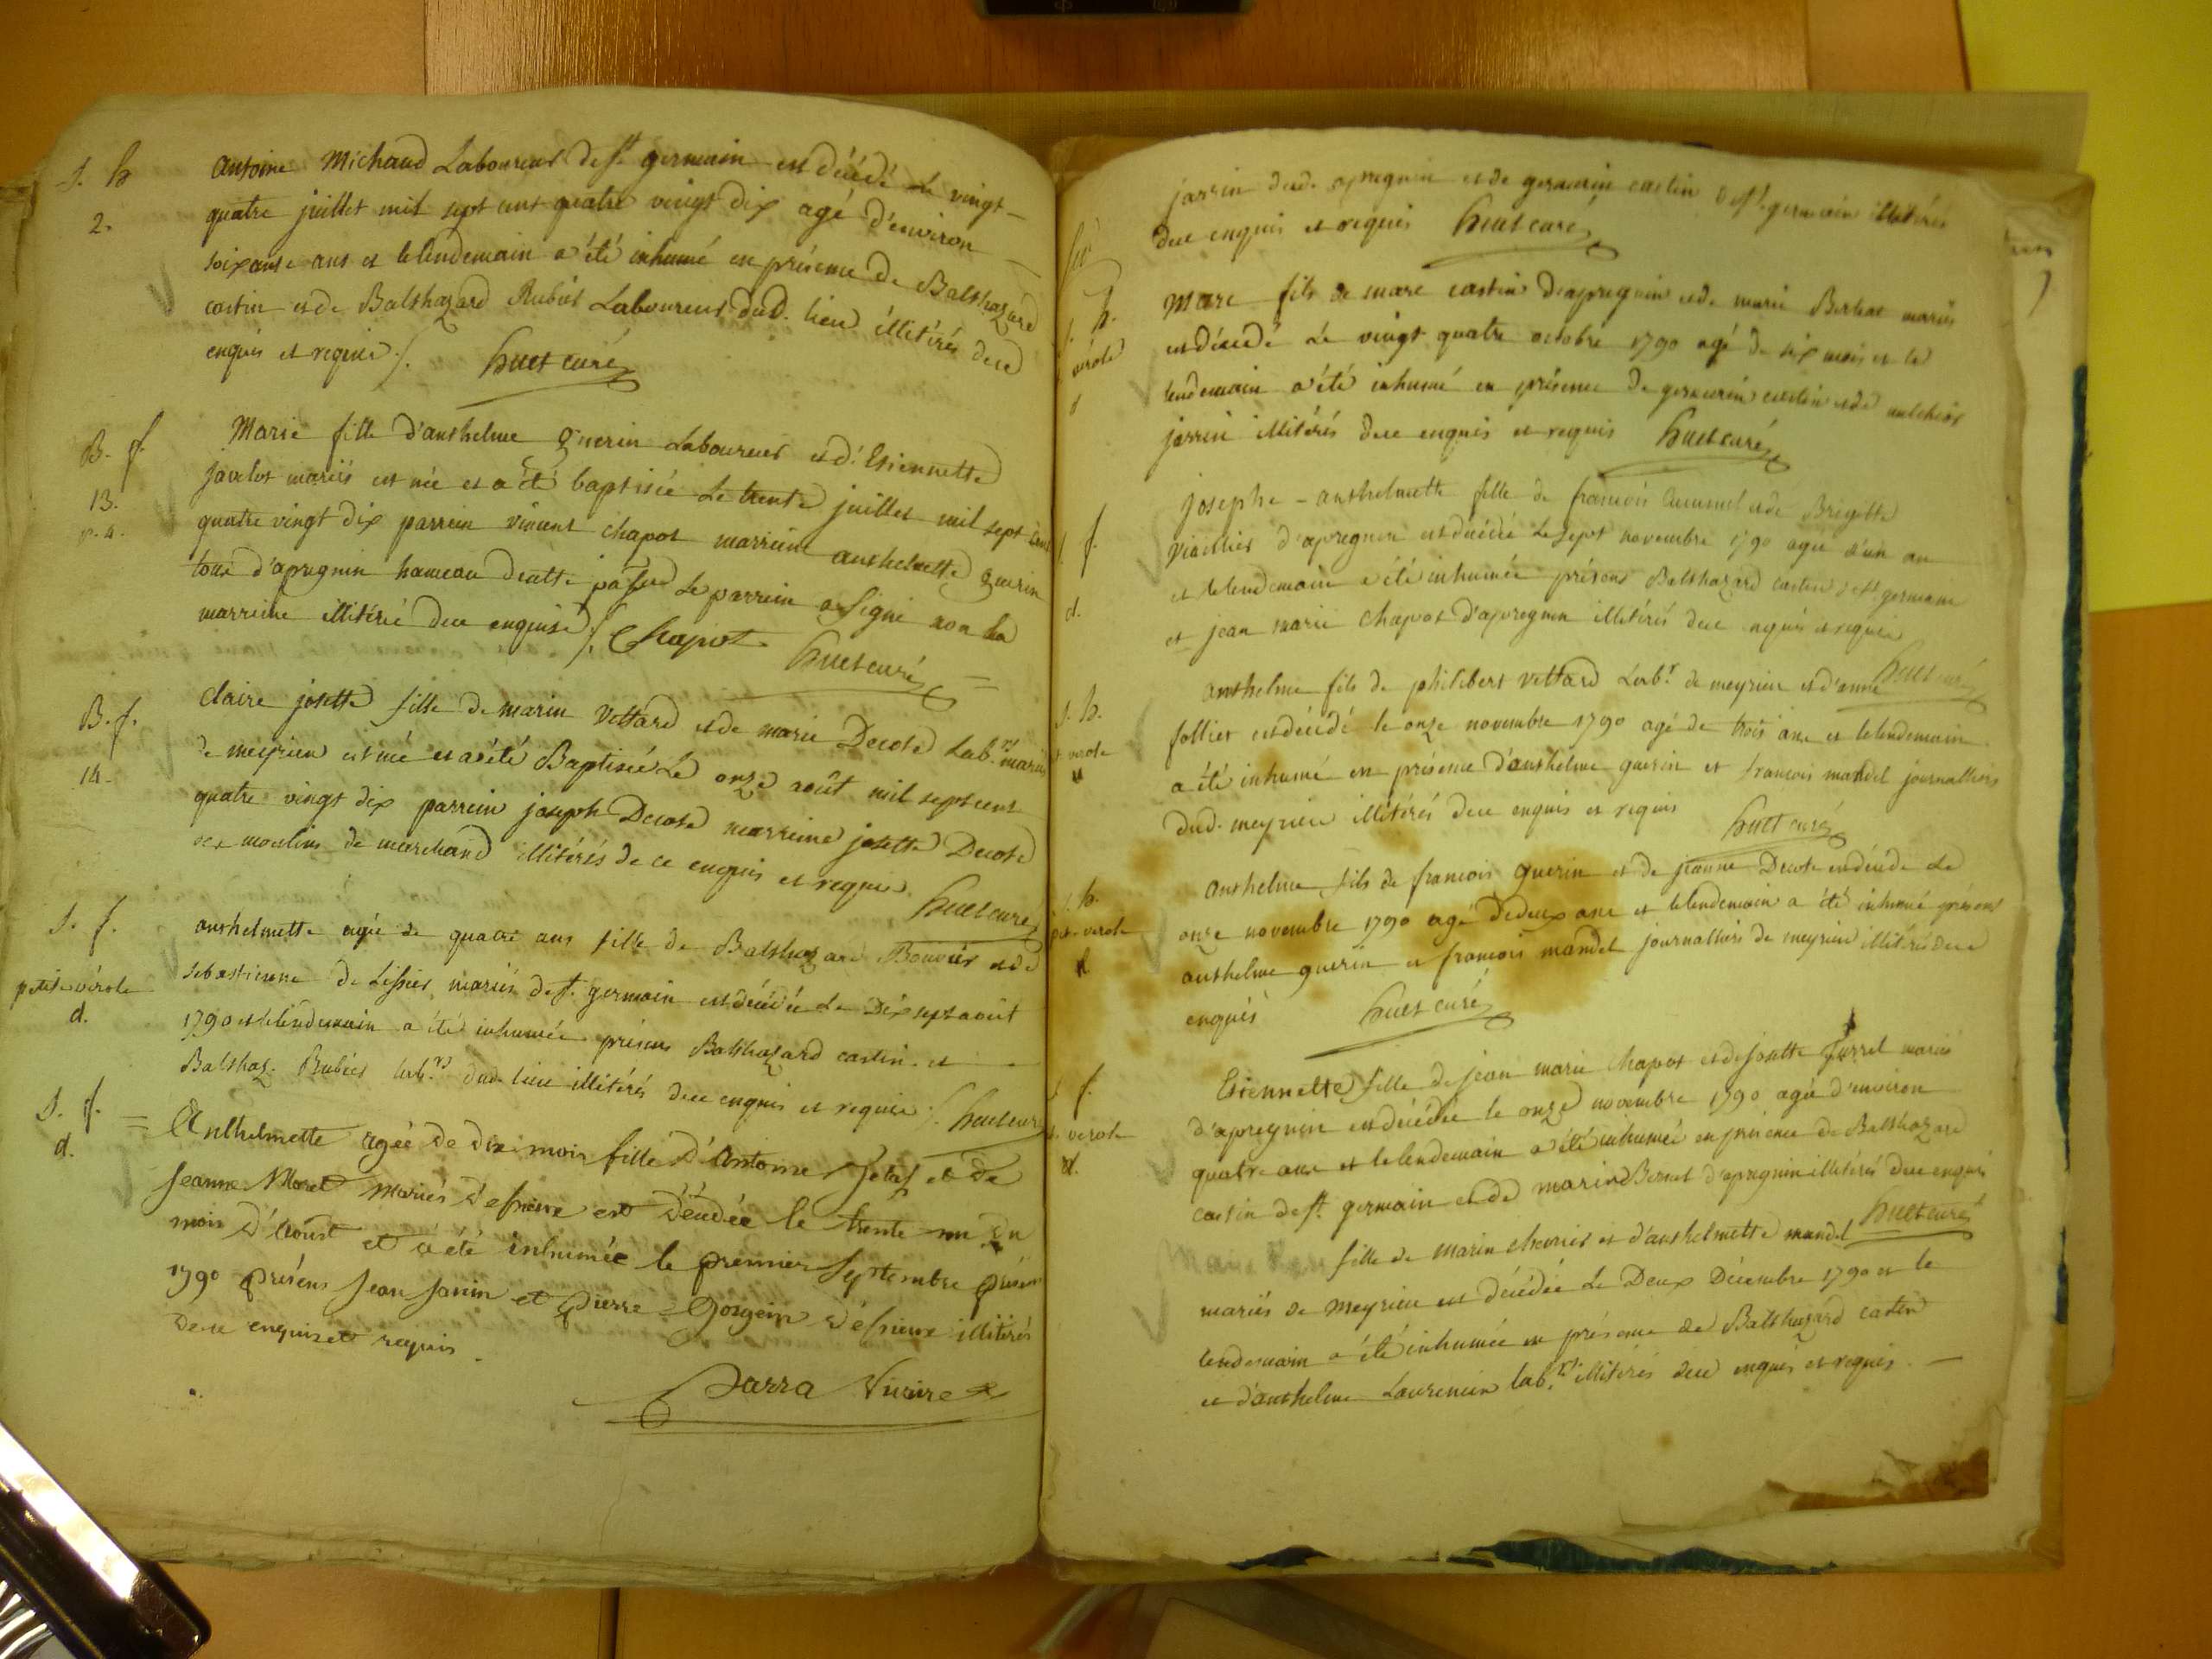 S. h
2.
antoine Michaud Laboureur de st germain est décédé le vingt-
quatre juillet mil sept cent quatre vingt dix agé d'environ
soixante ans et le lendemain a été inhumé en présence de Balthazard
castin et de Balthazard Rubier Laboureurs dud. lieu illitérés de ce
enquis et requis /. huet curé
B. f.
13.
Marie fille d'anthelme guerin Laboureur et d'Etiennette
javelot mariés est née et a été baptisée le trente juillet mil sept cent
quatre vingt dix parrein vincent chapot marreine anthelmette guerin
tous d'apregnin hameau de cette le parrein a signé non la
marreine illitérée de ce enquise /. Chapot
huet curé
B. f.
14.
claire josette fille de marin Vettard et de marie Decote Lab.rs mariés
de meyrieu est née et a été Baptisée le onze août mil sept cent
quatre vingt dix parrein joseph Decote marreine josette Decote
des moulins de marchand illitérés de ce enquis et requis
huet curé
S. f.
petite vérole
d.
anthelmette agée de quatre ans fille de Balthazard Bouvier et de
sebastienne de mariés de st. germain est décédée le dix sept août
1790 et le lendemain a été inhumée présens Balthazard castin et
Balthaz. Rubier lab.rs dud. lieu illitérés de ce enquis et requis /. huet curé
S. f.
d.
Anthelmette agée de dix mois fille d'Antoine et de
Jeanne Moret mariés est décédée le trente un du
mois d'Aoust et a été inhumée le premier Septembre
1790 présens Jean Janin et pierre illitérés
de ce enquis et requis.
Darra Vicaire
jarrin dud. apregnin et de germain castin de st. germain illitérés
de ce enquis et requis huet curé
h.
vérole
d
Marc fils de marc castin d'apregnin et de marie mariés
est décédé le vingt quatre octobre 1790 agé de six mois et le
lendemain a été inhumé en présence de germain castin et de melchior
jarrin illitérés de ce enquis et requis huet curé
f.
d.
josephe-anthelmette fille de francois et de Brigitte
d'apregnin est décédée le sept novembre 1790 agée d'un an
et le lendemain a été inhumée présens Balthazard castin de st germain
et jean marie Chapot d'apregnin illitérés de ce enquis et requis
huet curé
S. h.
verole
d
anthelme fils de philibert Vettard Lab.r de meyrieu et d'anne
follier est décédé le onze novembre 1790 agé de trois ans et le lendemain
a été inhumé en présence d'anthelme guerin et francois mandel journalliers
dud. meyrieu illitérés de ce enquis et requis huet curé
S. h.
verole
d
anthelme fils de francois guerin et de jeanne Decote est décédé le
onze novembre 1790 agé de deux ans et le lendemain a été inhumé présens
anthelme guerin et francois mandel journalliers de meyrieu illitérés de ce
enquis huet curé
f.
verole
d.
Etiennette fille de jean marie Chapot et de josette mariés
d'apregnin est décédée le onze novembre 1790 agée d'environ
quatre ans et le lendemain a été inhumée en présence de Balthazard
castin de st. germain et de marin Bernet d'apregnin illitérés de ce enquis
huet curé
Marie fille de marin chevrier et d'anthelmette mandel
mariés de meyrieu est décédée le Deux Décembre 1790 et le
lendemain a été inhumée en présence de Balthazard castin
et d'anthelme Laurencin lab.rs illitérés de ce enquis et requis. —